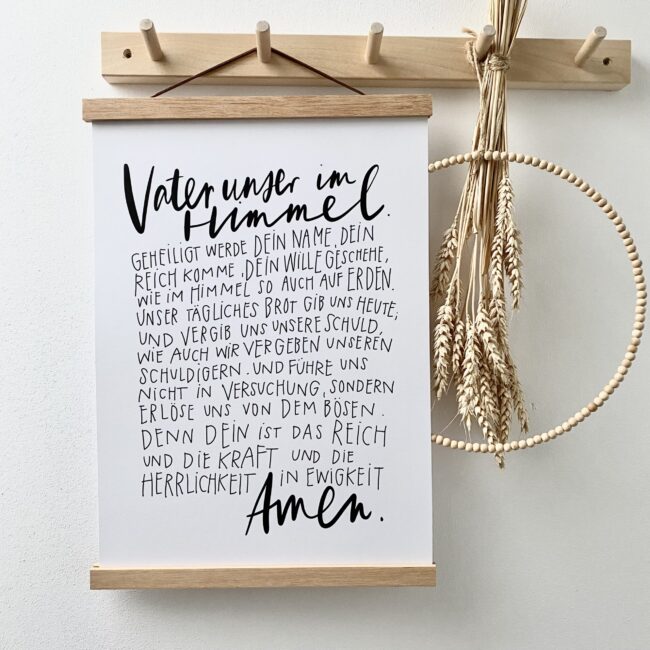 Vater unser im
Himmel.
GEHEILIGT WERDE DEIN NAME, DEIN
REICH KOMME, DEIN WILLE GESCHEHE,
WIE IM HIMMEL SO AUCH AUF ERDEN.
UNSER TÄGLICHES BROT GIB UNS HEUTE;
UND VERGIB UNS UNSERE SCHULD,
WIE AUCH WIR VERGEBEN UNSEREN
SCHULDIGERN. UND FÜHRE UNS
NICHT IN VERSUCHUNG, SONDERN
ERLÖSE UNS VON DEM BÖSEN.
DENN DEIN IST DAS REICH
UND DIE KRAFT UND DIE
HERRLICHKEIT IN EWIGKEIT
Amen.